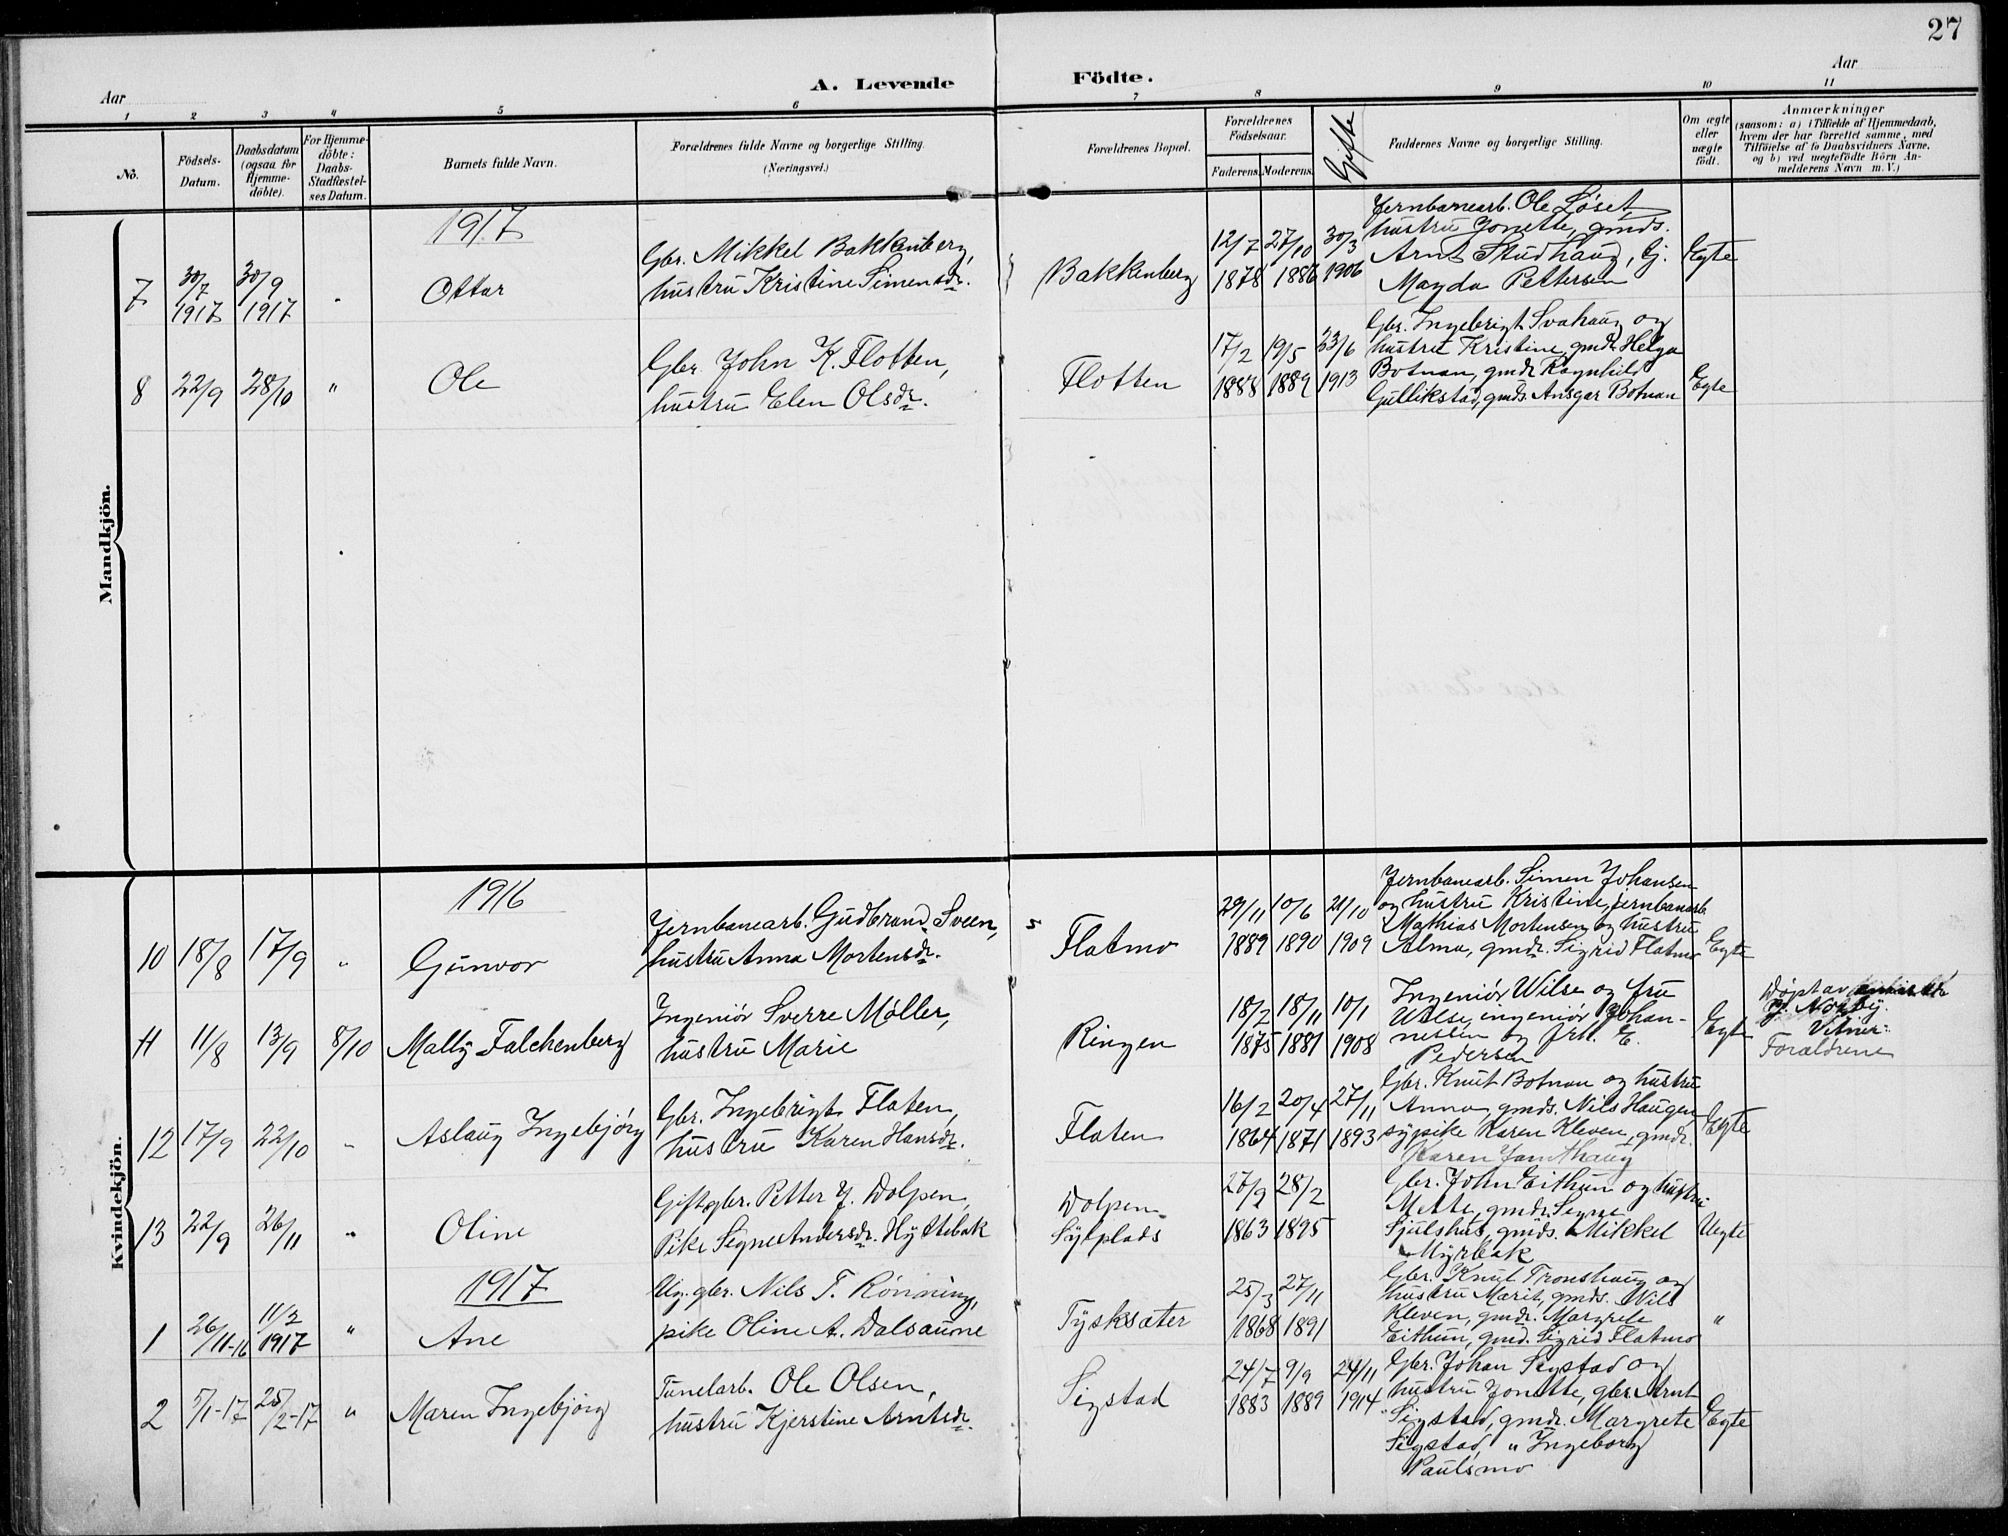 27
A. Levende Födte.
Aar
Aar
1 2 3 4 5 6 7 8 9 10 11
No.
Födsels-
Datum.
Daabsdatum
(ogsaa for
Hjemme-
döbte).
For Hjemme-
döbte:
Daabs-
Stadfæstel-
ses Datum.
Barnets fulde Navn.
Forældrenes fulde Navne og borgerlige Stilling.
(Næringsvei.)
Forældrenes Bopæl.
Forældrenes
Födselsaar.
Faderens. Moderens.
Gifte
Faddernes Navne og borgerlige Stilling.
Om ægte
eller
uægte
födt.
Anmærkninger
(saasom: a) i Tilfælde af Hjemmedaab,
hvem der har forrettet samme, med
Tilföielse af to Daabsvidners Navne,
og b) ved uægtefödte Börn An-
melderens Navn m. V.)
Mandkjön.
1917
7
30/7
1917
30/9
1917
"
Ottar
Gbr. Mikkel Bakkenberg,
hustru Kristine Simensdr.
Bakkenberg
12/7 27/10 30/3
1878 1886 1906
Jernbanearb. Ole Løset,
hustru Jonette, gmds.
Arnt Studhaug, Gj.
Magda Pettersen
Egte
8
22/9
28/10
"
Ole
Gbr. John K. Flotten,
hustru Elen Olsdr.
Flotten
17/2 19/5 23/6
1888 1889 1913
Gbr. Ingebrigt Svahaug og
hustru Kristine, gmdr Helga
Botnan, gmdr Ragnhild
Gullikstad, gmds. Ansgar Botnan
Egte
Kvindekjön.
1916
10
18/8
17/9
"
Gunvor
Jernbanearb. Gudbrand Sveen,
hustru Anna Mortensdr.
Flatmo
29/11 10/6 21/10
1889 1890 1909
Jernbanearb. Simen Johansen
og hustru Kristine, jernbanearb.
Mathias Mortensen og hustru
Alma, gmdr. Sigrid Flatmo
Egte
11
11/8
13/9
8/10
Mally Falchenberg
Ingeniör Sverre Møller,
hustru Marie
Ringen
18/2 18/11 10/1
1875 1881 1908
Ingeniör Wilse og fru
Wilse, ingeniör Johan-
nesen og frk. E.
Pedersen
Egte
Døpt av
J. Norby.
Vitner:
Forældrene
12
17/9
22/10
"
Aslaug Ingebjörg
Gbr. Ingebrigt Flaten,
hustru Karen Hansdr.
Flaten
16/2 20/4 27/11
1864 1871 1893
Gbr. Knut Botnan og hustru
Anna, gmds. Nils Haugen,
sypike Karen Kleven, gmdr.
Karen Jamthaug
Egte
13
22/9
26/11
"
Oline
Gift gbr. Petter J. Dolpen,
Pike Signe Andersdr. Hyttebak
Dolpen
Sylplads
27/9 28/2
1863 1895
Gbr. John Eithun og hustru
Mette, gmdr. Signe
Sjulshus, gmds. Mikkel
Myrbak
Uegte
1917
1
26/11-16
11/2
1917
"
Ane
Ug. gbr. Nils T. Rønning,
pike Oline A. Dalsaune
Tysksæter
25/3 27/11
1868 1891
Gbr. Knut Tronshaug og
hustru Marit, gmds. Nils
Kleven, gmdr. Margrete
Eithun, gmd. Sigrid Flatmo
"
2
5/1-17
25/2-17
"
Maren Ingebjörg
Tunelarb. Ole Olsen,
hustru Kjerstine Arntsdr.
Sigstad
24/7 9/9 24/11
1883 1889 1914
Gbr. Johan Sigstad og
hustru Jonette, gbr. Arnt
Sigstad, gmdr. Margrete
Sigstad, " Ingeborg
Paulsmo
Egte